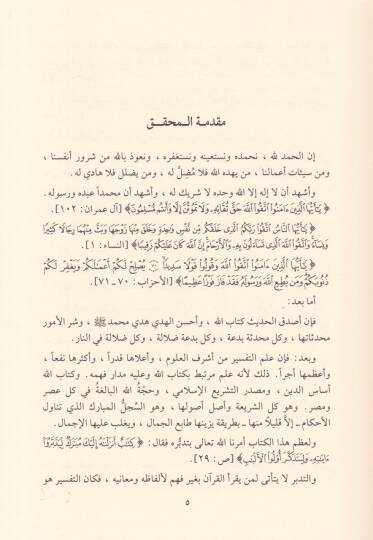 مقدمة الـمحقـق
إن الحمد لله ، نحمده ونستعينه ونستغفره ، ونعوذ بالله من شرور أنفسنا ،
ومن سيئات أعمالنا ، من يهده الله فلا مُضِلَّ له ، ومن يضلل فلا هادي له .
وأشهد أن لا إله إلا الله وحده لا شريك له ، وأشهد أن محمداً عبده ورسوله .
﴿ يَٰٓأَيُّهَا ٱلَّذِينَ ءَامَنُوا۟ ٱتَّقُوا۟ ٱللَّهَ حَقَّ تُقَاتِهِۦ وَلَا تَمُوتُنَّ إِلَّا وَأَنتُم مُّسْلِمُونَ ﴾ [آل عمران : ١٠٢] .
﴿ يَٰٓأَيُّهَا ٱلنَّاسُ ٱتَّقُوا۟ رَبَّكُمُ ٱلَّذِى خَلَقَكُم مِّن نَّفْسٍ وَٰحِدَةٍ وَخَلَقَ مِنْهَا زَوْجَهَا وَبَثَّ مِنْهُمَا رِجَالًا كَثِيرًا
وَنِسَآءً وَٱتَّقُوا۟ ٱللَّهَ ٱلَّذِى تَسَآءَلُونَ بِهِۦ وَٱلْأَرْحَامَ إِنَّ ٱللَّهَ كَانَ عَلَيْكُمْ رَقِيبًا ﴾ [النساء : ١] .
﴿ يَٰٓأَيُّهَا ٱلَّذِينَ ءَامَنُوا۟ ٱتَّقُوا۟ ٱللَّهَ وَقُولُوا۟ قَوْلًا سَدِيدًا يُصْلِحْ لَكُمْ أَعْمَٰلَكُمْ وَيَغْفِرْ لَكُمْ
ذُنُوبَكُمْ وَمَن يُطِعِ ٱللَّهَ وَرَسُولَهُۥ فَقَدْ فَازَ فَوْزًا عَظِيمًا ﴾ [الأحزاب : ٧٠ـ٧١] .
أما بعد :
فإن أصدق الحديث كتاب الله ، وأحسن الهدي هدي محمد ﷺ ، وشر الأمور
محدثاتها ، وكل محدثة بدعة ، وكل بدعة ضلالة ، وكل ضلالة في النار .
وبعد : فإن علم التفسير من أشرف العلوم ، وأعلاها قدراً ، وأكثرها نفعاً ،
وأعظمها أجراً . ذلك لأنه علم مرتبط بكتاب الله وعليه مدار فهمه . وكتاب الله
أساس الدين ، ومصدر التشريع الإسلامي ، وحجَّة الله البالغةُ في كل عصر
ومصر . وهو كل الشريعة وأصل أصولها ، وهو السجلُّ المبارك الذي تناول
الأحكام ـ إلاَّ قليلاً منها ـ بطريقة يزينها طابع الجمال ، ويغلب عليها الإجمال .
ولعظم هذا الكتاب أمرنا الله تعالى بتدبُّره فقال : ﴿ كِتَٰبٌ أَنزَلْنَٰهُ إِلَيْكَ مُبَٰرَكٌ لِّيَدَّبَّرُوٓا۟
ءَايَٰتِهِۦ وَلِيَتَذَكَّرَ أُو۟لُوا۟ ٱلْأَلْبَٰبِ ﴾ [ص : ٢٩] .
والتدبر لا يتأتى لمن يقرأ القرآن بغير فهم لألفاظه ومعانيه ، فكان التفسير هو
٥